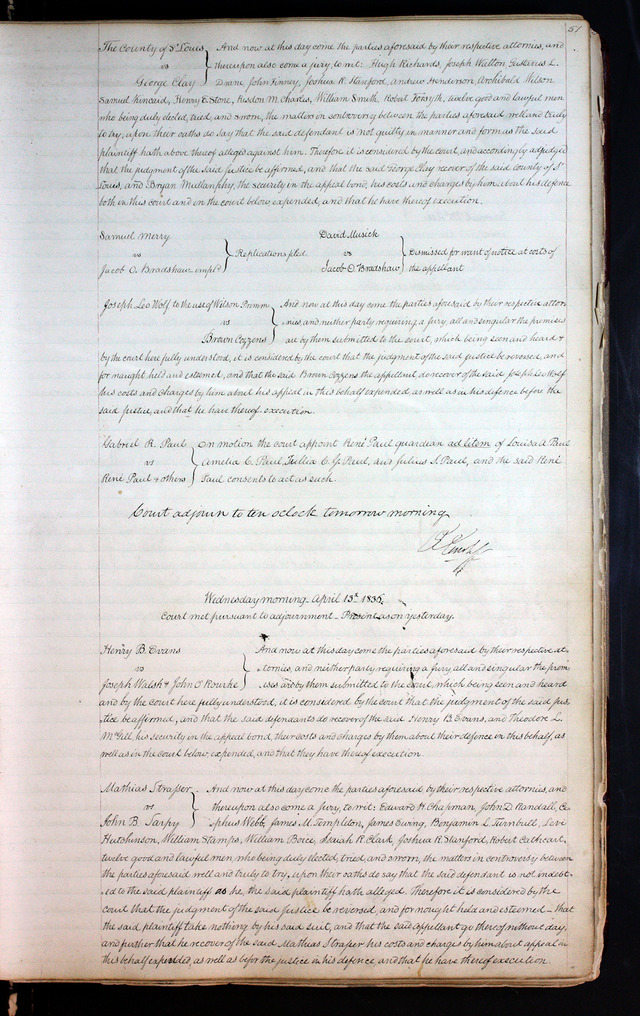 51
The County of St Louis } And now at this day come the parties aforesaid by their respective attornies, and
vs } thereupon also come a jury, to wit: Hugh Richards, Joseph Walton, L.
George Clay } Drane, John Finney, Joshua R. Stanford, Andrew Henderson, Archibald Wilson
Samuel Kincaid, Henry E. Stone, M. Charles, William Smith, Robert Forsyth, twelve good and lawful men
who being duly elected, tried, and sworn, the matters in controversy between the parties aforesaid well and truly
to try, upon their oaths do say that the said defendant is not guilty in manner and form as the said
plaintiff hath above thereof alleged against him. Therefore it is considered by the court, and accordingly adjudged
that the judgment of the said justice be affirmed, and that the said George Clay recover of the said county of St
Louis, and Bryan Mullanphy, the security in the appeal bond, his costs and charges by him about his defence
both in this court and in the court below, expended, and that he have thereof execution.
Samuel Merry
vs } Replications filed
Jacob O. Bradshaw impld
David Musick
vs } Dismissed for want of notice at costs of
Jacob O. Bradshaw } the appellant
Joseph Leo Wolf to the use of Wilson Primm } And now at this day come the parties aforesaid by their respective attor
vs } nies, and neither party requiring a jury, all and singular the premises
Brown Cozzens } are by them submitted to the court, which being seen and heard &
by the court here fully understood, it is considered by the court that the judgment of the said justice be reversed, and
for naught held and esteemed, and that the said Brown Cozzens the appellant do recover of the said Joseph Leo Wolf
his costs and charges by him about his appeal in this behalf expended, as well as in his defence before the
said justice, and that he have thereof execution.
Gabriel R. Paul } On motion the court appoint René Paul guardian ad litem of Louisa A Paul
vs } Amelia C. Paul, Julia C. G. Paul, and Julius S. Paul, and the said René
René Paul & others } Paul consents to act as such.
Court adjourn to ten oclock tomorrow morning
Wednesday morning April 13th 1836.
Court met pursuant to adjournment - Present as on yesterday.
Henry B. Evans } And now at this day come the parties aforesaid by their respective at
vs } tornies, and neither party requiring a jury, all and singular the prem
Joseph Walsh & John O'Rourke } ises are by them submitted to the court, which being seen and heard
and by the court here fully understood, it is considered by the court that the judgment of the said jus
tice be affirmed, and that the said defendants do recover of the said Henry B. Evans, and Theodore L.
McGill, his security in the appeal bond, their costs and charges by them about their defence in this behalf, as
well as in the court below, expended, and that they have thereof execution
Mathias Strasser } And now at this day come the parties aforesaid by their respective attornies, and
vs } thereupon also come a jury, to wit: Edward H. Chapman, John D. Randall, Ce
John B. Sarpy } phus Webb, James M. Templeton, James Ewing, Benjamin L. Turnbull, Levi
Hutchinson, William Stamps, William Boice, Isaiah R. Clark, Joshua R. Stanford, Robert Cathcart,
twelve good and lawful men, who being duly elected, tried, and sworn, the matters in controversy between
the parties aforesaid well and truly to try, upon their oaths do say that the said defendant is not indebt
ed to the said plaintiff as he, the said plaintiff hath alleged. Therefore it is considered by the
court that the judgment of the said justice be reversed and for nought held and esteemed - that
the said plaintiff take nothing by his said suit, and that the said appellant go thereof without day,
and further that he recover of the said Mathias Strasser his costs and charges by him about appeal in
this behalf expended, as well as befor the justice in his defence, and that he have thereof execution.